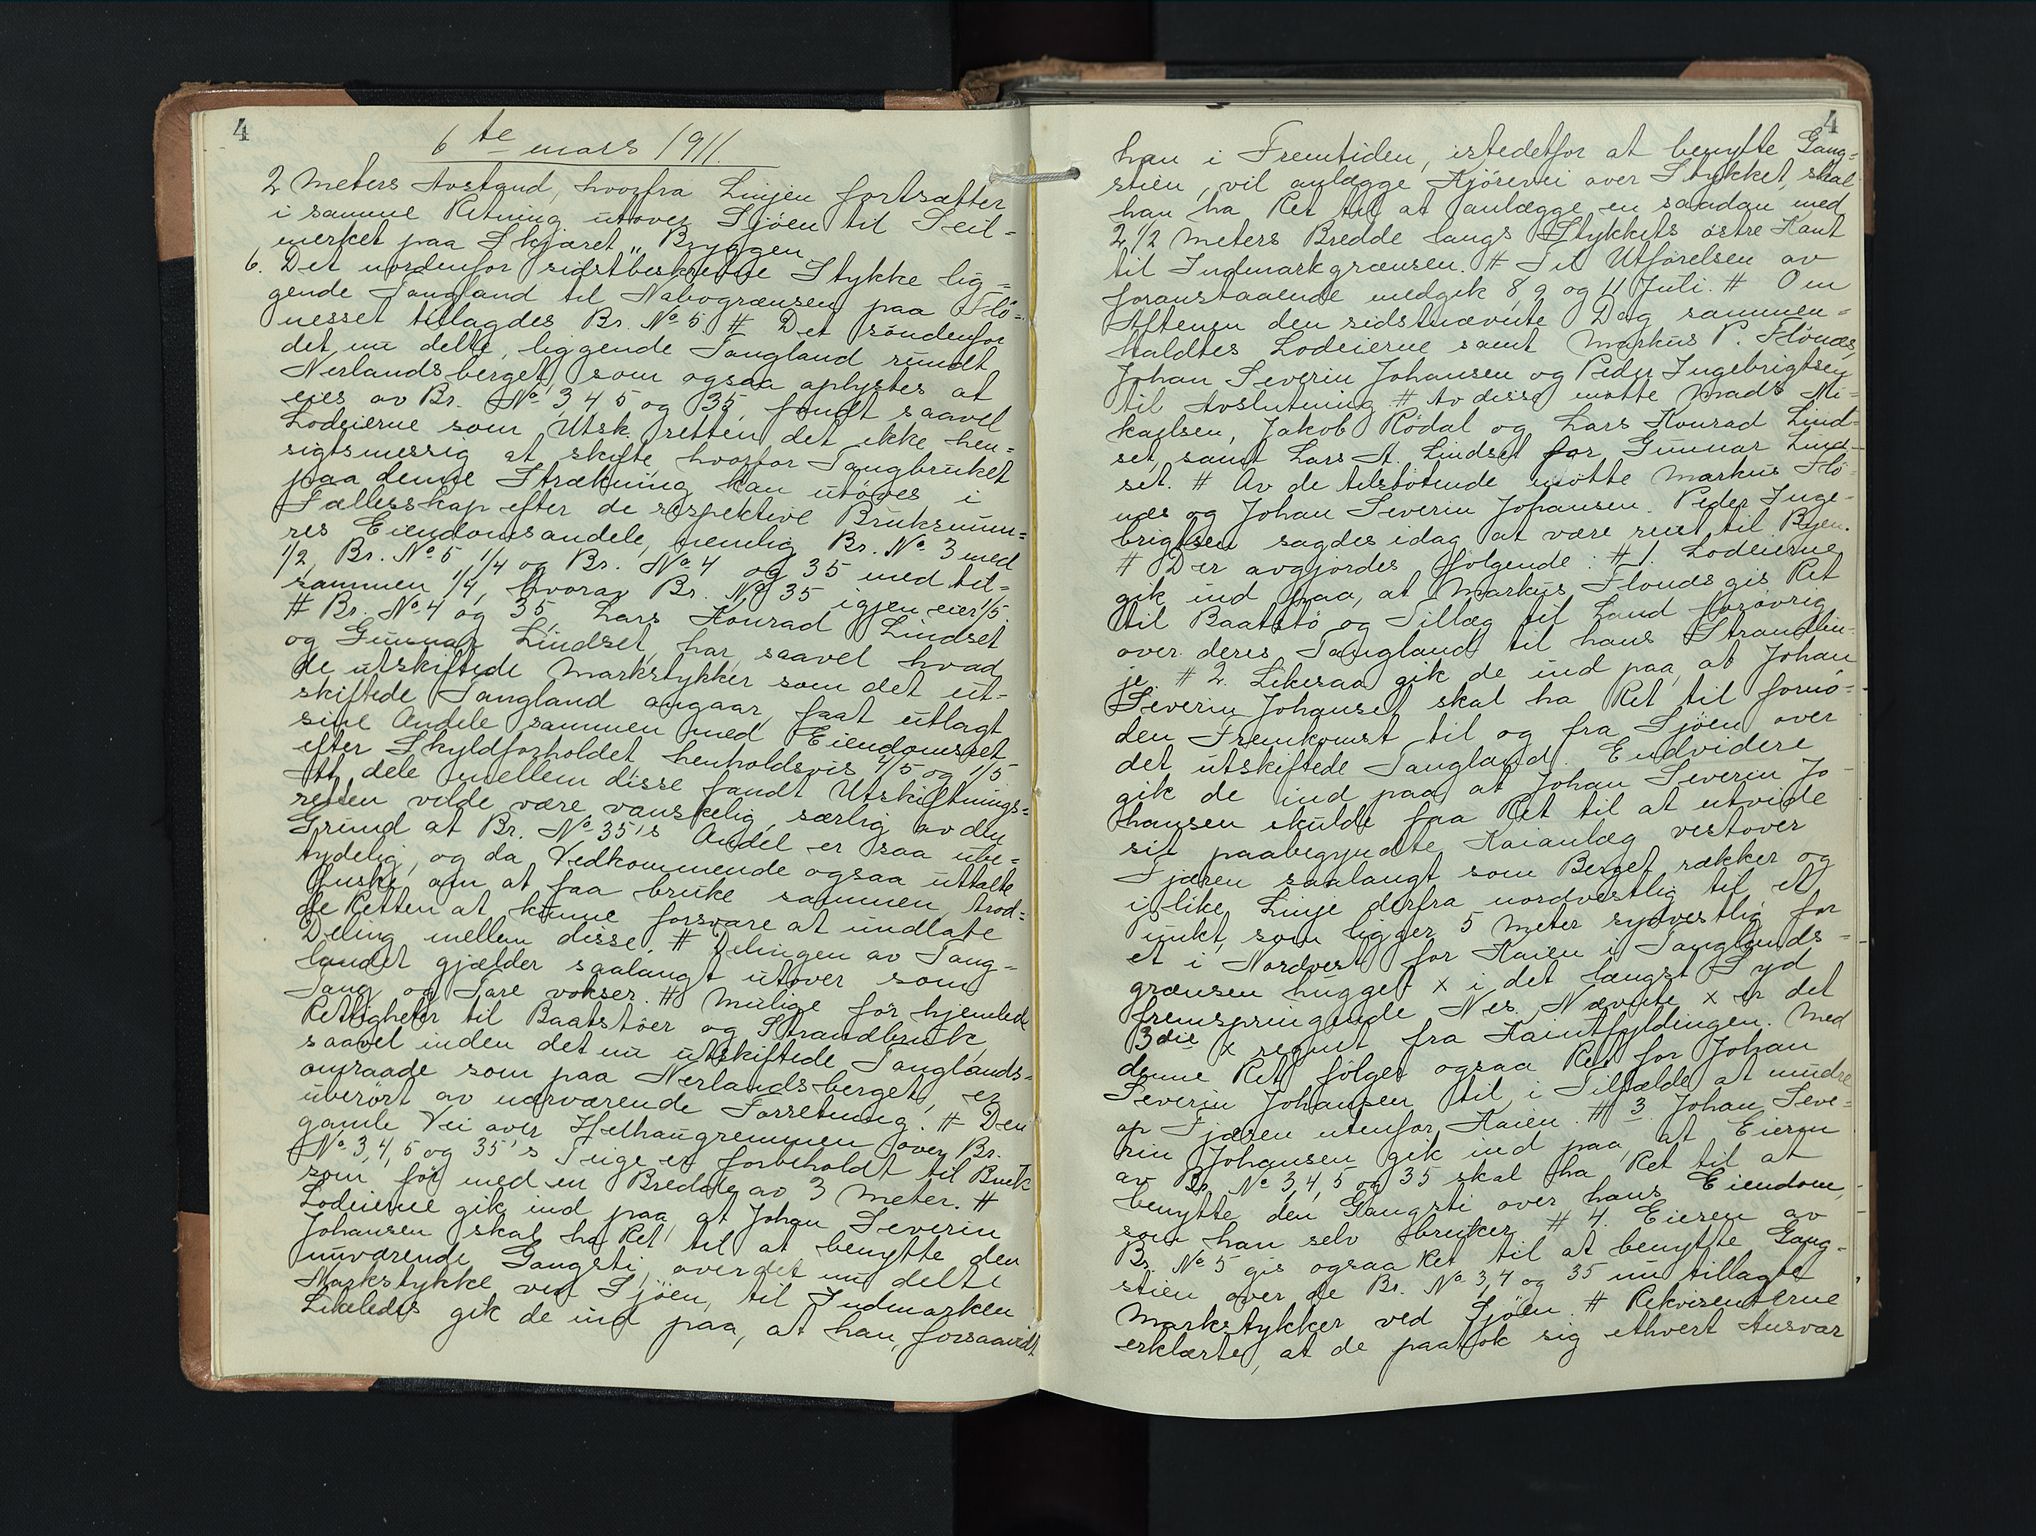 4
6te mars 1911.
2 Meters Avstand, hvorfra Linjen fortsætter
i samme Retning utover Sjöen til Seil=
merket paa Skjæret „Bryggen
6. Det nordenfor sidstbeskrevne Stykke lig=
gende Tangland til Nabogrænsen paa Flö=
nesset tillagdes Br. No 5 # Det söndenfor
det nu delte, liggende Tangland rundt
Nerlandsberget, som ogsaa oplystes at
eies av Br. No 3, 4, 5 og 35, fandt saavel
Lodeierne som Utsk.retten det ikke hen=
sigtsmessig at skifte, hvorfor Tangbruket
paa denne Strækning kan utöves i
Fællesskap efter de respektive Bruksnum=
res Eiendomsandele, nemlig Br. No. 3 med
1/2, Br. No 5 1/4 og Br. No 4 og 35 med til=
sammen 1/4, hvorav Br. No 35 igjen eier 1/5.
# Br. No 4 og 35, Lars Konrad Lindset
og Gunnar Lindset, har, saavel hvad
de utskiftede Markstykker som det ut-
skiftede Tangland angaar, faat utlagt
sine Andele sammen med Eiendomsret
efter Skyldforholdet henholdsvis 4/5 og 1/5
At dele mellem disse fandt Utskiftnings=
retten vilde være vanskelig, særlig av den
Grund at Br. No 35's Andel er saa ube=
tydelig, og da Vedkommende ogsaa uttalte
Önske om at faa bruke sammen, trod=
de Retten at kunne forsvare at undlate
Deling mellem disse. # Delingen av Tang=
landet gjælder saalangt utover som
Tang og Tare vokser. # Mulige för hjemlede
Rettigheter til Baatstöer og Strandbruk,
saavel inden det nu utskiftede Tanglands=
omraade som paa Nerlandsberget, er
uberört av nærværende Forretning. # Den
gamle Vei over Helhaugremmen over Br.
No 3, 4, 5 og 35's Teige er forbeholdt til Bruk
som för med en Bredde av 3 Meter. #
Lodeierne gik ind paa, at Johan Severin
Johansen skal ha Ret til at benytte den
nuværende Gangsti over det nu delte
Markstykke ved Sjöen, til Indmarken
Likeledes gik de ind paa, at han, forsaavidt
4
han i Fremtiden, istedetfor at benytte Gang=
stien, vil anlægge Kjörevei over Stykket, skal
han ha Ret til at anlægge en saadan med
2 1/2 Meters Bredde langs Stykkets östre Kant
til Indmarkgrænsen. # Til Utförelsen av
foranstaaende medgik 8, 9 og 11 Juli. # Om
Aftenen den sidstnævnte Dag sammen=
kaldtes Lodeierne samt Markus P. Flönæs,
Johan Severin Johansen og Peder Ingebrigtsen
til Avslutning # Av disse mötte Mads Mi=
kaelsen, Jakob Rödal og Lars Konrad Lind=
set, samt Lars A. Lindset for Gunnar Lind=
set. # Av de tilstötende mötte Markus Flö=
næs og Johan Severin Johansen. Peder Inge=
brigtsen sagdes idag at være reist til Byen.
# Der avgjordes fölgende: # 1. Lodeierne
gik ind paa, at Markus Flönæs gis Ret
til Baatstö og Tillæg til Land forövrig
over deres Tangland til hans Strandlin=
je. # 2. Likesaa gik de ind paa, at Johan
Severin Johansen skal ha Ret til fornö=
den Fremkomst til og fra Sjöen over
det utskiftede Tangland. Endvidere
gik de ind paa at Johan Severin Jo=
hansen skulde faa Ret til at utvide
sit paabegyndte Kaianlæg vestover
Fjæren saalangt som Berget rækker og
i like Linje derfra nordvestlig til et
unkt, som ligger 5 Meter sydvestlig for
et i Nordvest for Kaien i Tanglands=
grænsen hugget x i det længst Syd
fremspringende Nes. Nævnte x er det
3die x regnet fra Kaiutfyldingen. Med
denne Ret fölger ogsaa Ret for Johan
Severin Johansen til i Tilfælde at mudre
op Fjæren utenfor Kaien. # 3. Johan Seve=
rin Johansen gik ind paa, at Eieren
av Br. No 3, 4, 5 og 35 skal ha Ret til at
benytte den Gangsti over hans Eiendom,
som han selv bruker. # 4. Eieren av
Br. No 5 gis ogsaa Ret til at benytte Gang=
stien over de Br. No 3, 4 og 35 nu tillagte
Markstykker ved Sjöen. # Rekvirenterne
erklærte, at de paatok sig ethvert Ansvar